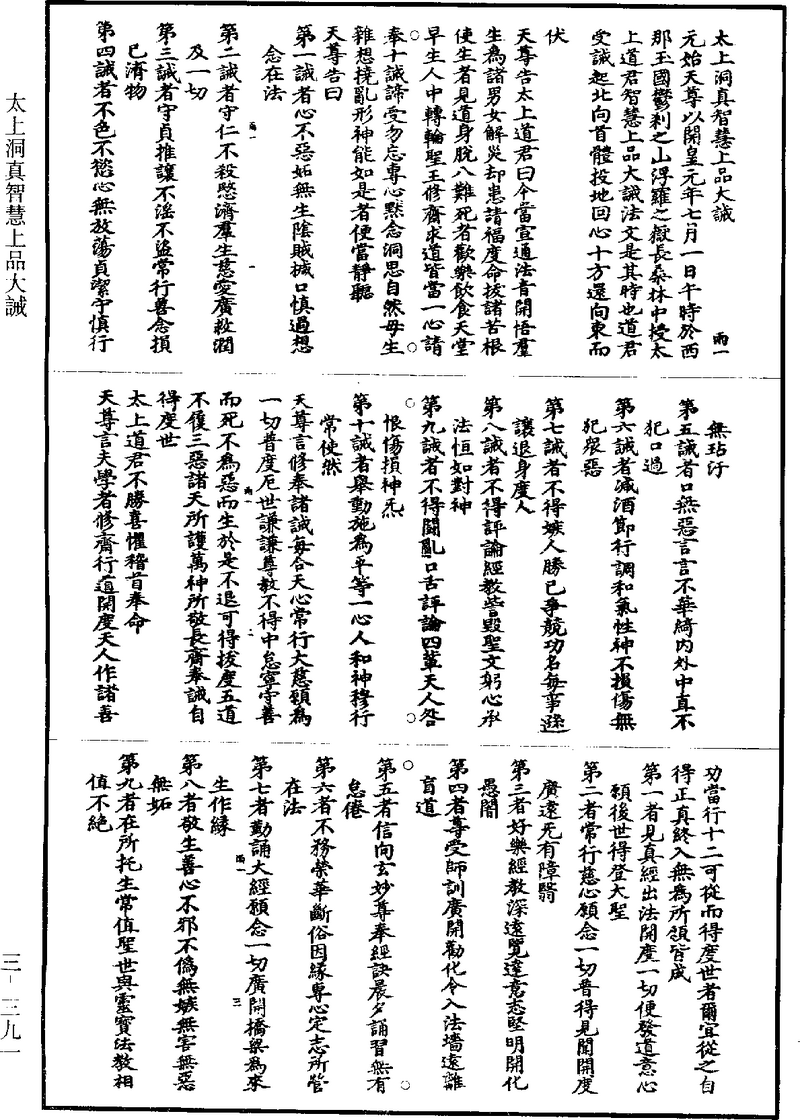 太上洞真智慧上品大誡
三-三九一
太上洞真智慧上品大誡
雨一
元始天尊以開皇元年七月一日午時於西
那玉國鬱刹之山浮羅之嶽長桑林中授太
上道君智慧上品大誡法文是其時也道君
受誡起北向首體投地回心十方還向東而
伏
天尊告太上道君曰今當宣通法音開悟羣
生為諸男女解災却患請福度命拔諸苦根
使生者見道身脫八難死者歡樂飲食天堂
早生人中轉輪聖王修齋求道皆當一心請
奉十誡諦受勿忘專心默念洞思自然毋生
雜想撓亂形神能如是者便當靜聽
天尊告曰
第一誡者心不惡妬無生陰賊撿口慎過想
念在法
第二誡者守仁不殺愍濟羣生慈愛廣救潤
及一切
第三誡者守貞推讓不淫不盜常行善念損
己濟物
第四誡者不色不慾心無放蕩貞潔守慎行
無玷汙
第五誡者口無惡言言不華綺內外中直不
犯口過
第六誡者減酒節行調和氣性神不損傷無
犯衆惡
第七誡者不得嫉人勝己爭競功名每事遜
讓退身度人
第八誡者不得評論經教訾毀聖文躬心承
法恒如對神
第九誡者不得鬪亂口舌評論四輩天人咎
恨傷損神炁
第十誡者舉動施為平等一心人和神穆行
常使然
天尊言修奉諸誡每合天心常行大慈願為
一切普度厄世謙謙尊教不得中怠寧守善
而死不為惡而生於是不退可得拔度五道
不履三惡諸天所護萬神所敬長齋奉誡自
得度世
太上道君不勝喜懼稽首奉命
天尊言夫學者修齋行道開度天人作諸善
功當行十二可從而得度世者爾宜從之自
得正真終入無為所領皆成
第一者見真經出法開度一切便發道意心
願後世得登大聖
第二者常行慈心願念一切普得見聞開度
廣遠无有障翳
第三者好樂經教深遠覽達意志堅明開化
愚闇
第四者尊受師訓廣開勸化令入法墻遠離
盲道
第五者信向玄妙尊奉經訣晨夕誦習無有
怠倦
第六者不務榮華斷俗因緣專心定志所管
在法
第七者勤誦大經願念一切廣開橋梁為來
生作緣
第八者敬生善心不邪不偽無嫉無害無惡
無妬
第九者在所托生常值聖世與靈寶法教相
值不絕